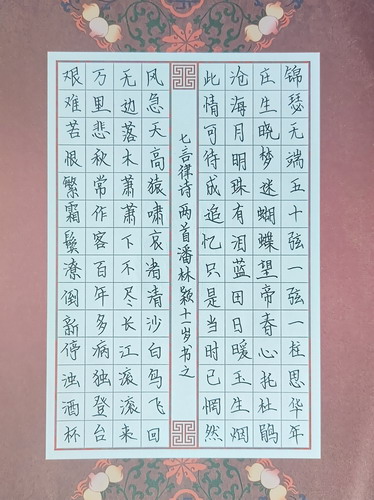 锦瑟无端五十弦一弦一柱思华年
庄生晓梦迷蝴蝶望帝春心托杜鹃
沧海月明珠有泪蓝田日暖玉生烟
此情可待成追忆只是当时已惘然
七言律诗两首潘林颖十一岁书之
风急天高猿啸哀渚清沙白鸟飞回
无边落木萧萧下不尽长江滚滚来
万里悲秋常作客百年多病独登台
艰难苦恨繁霜鬓潦倒新停浊酒杯